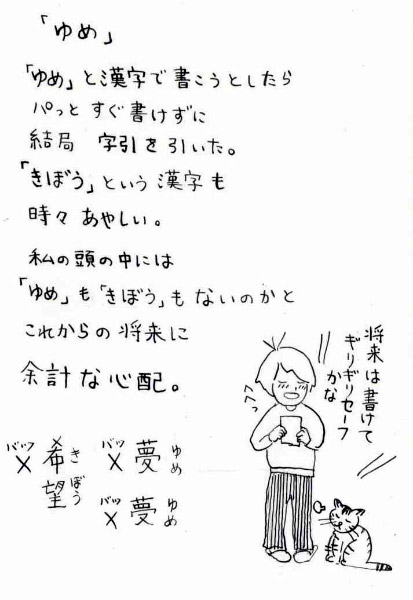 「ゆめ」
「ゆめ」と漢字で書こうとしたら
パっと すぐ書けずに
結局 字引を引いた。
「きぼう」という漢字も
時々 あやしい。
私の頭の中には
「ゆめ」も「きぼう」もないのかと
これからの将来に
余計な心配。
将来は書けて
ギリギリセーフ
かな
夢 ゆめ
バツ ×
夢 ゆめ
バツ ×
希望 きぼう
バツ ×